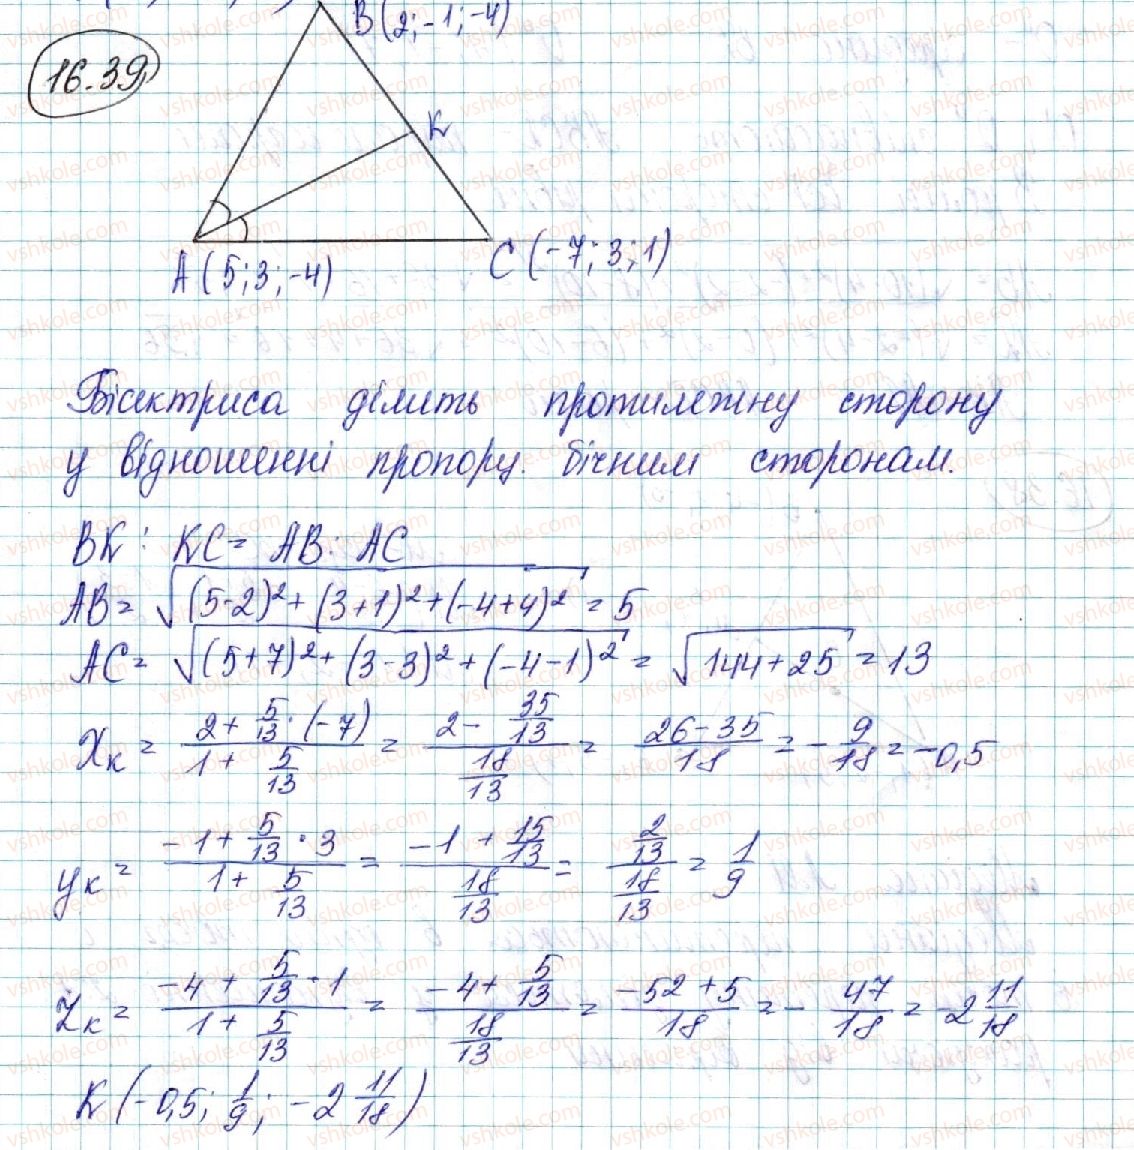 B(2;-1;-4)
16.39
K
A(5;3;-4)
C(-7;3;1)
Бісектриса ділить протилежну сторону
у відношенні пропорц. бічним сторонам.
BK : KC = AB : AC
AB = √((5-2)² + (3+1)² + (-4+4)²) = 5
AC = √((5+7)² + (3-3)² + (-4-1)²) = √(144+25) = 13
Xк = (2 + 5/13 · (-7))/(1 + 5/13) = (2 - 35/13)/(18/13) = (26-35)/18 = -9/18 = -0,5
yк = (-1 + 5/13 · 3)/(1 + 5/13) = (-1 + 15/13)/(18/13) = (2/13)/(18/13) = 1/9
Zк = (-4 + 5/13 · 1)/(1 + 5/13) = (-4 + 5/13)/(18/13) = (-52+5)/18 = -47/18 = -2 11/18
K(-0,5; 1/9; -2 11/18)
vshkole.com